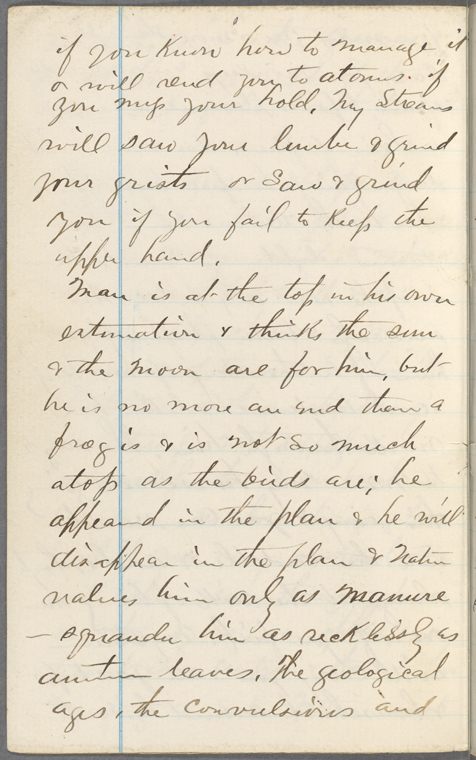 if you know how to manage it
or will rend you to atoms. if
you miss your hold. My Streams
will saw your lumber & grind
your grists or Saw & grind
you if you fail to keep the
upper hand.
Man is at the top in his own
estimation & thinks the sun
& the moon are for him, but
he is no more an end than a
frog is & is not so much
atop as the birds are; he
appeared in the plan & he will
disappear in the plan & Nature
values him only as manure
— squander him as recklessly as
autumn leaves. The geological
ages, the convulsions and